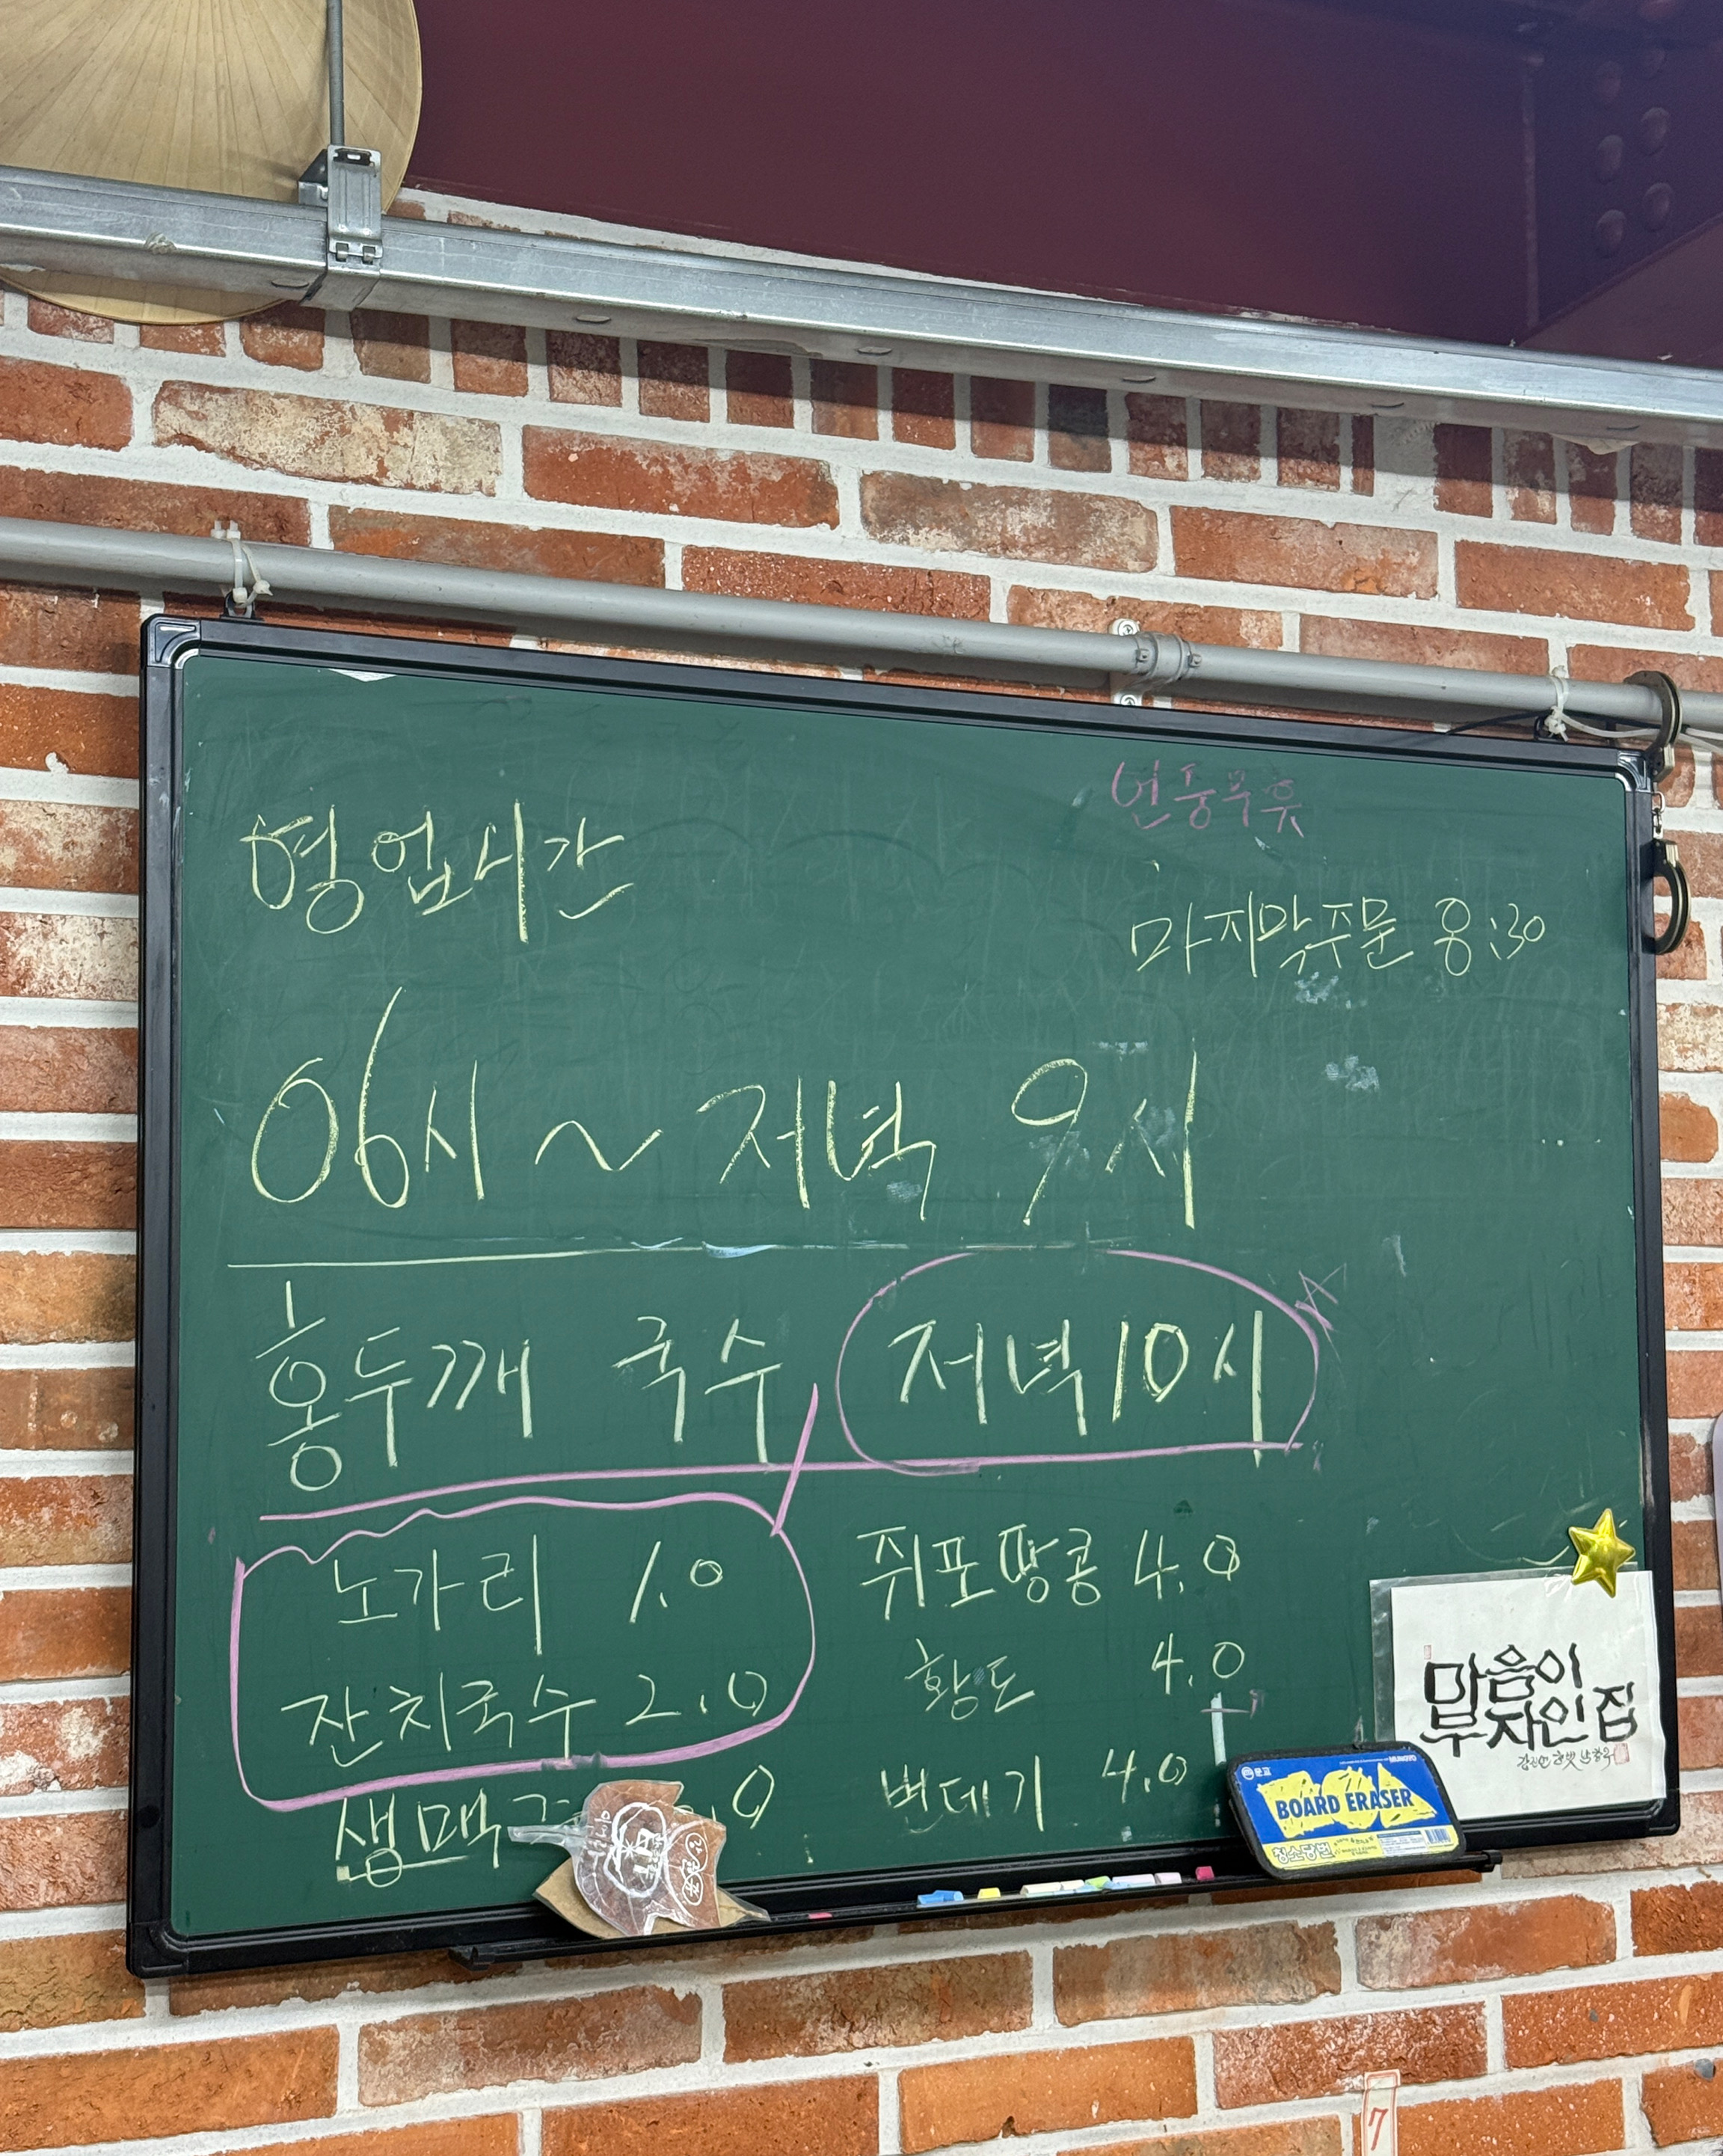 연중무휴
영업시간
마지막주문 8:30
06시 ~ 저녁 9시
홍두깨 국수 저녁10시
노가리 1.0
잔치국수 2.0
생맥 .0
쥐포땅콩 4.0
황도 4.0
번데기 4.0
마음이
부자인 집
문교
MUNGYO
BOARD ERASER
청소당번
7